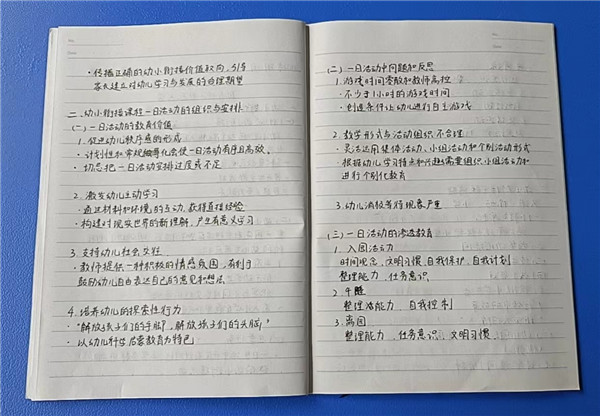 · 传播正确的幼小衔接价值取向，引导
家长建立对幼儿学习与发展的合理期望
二、幼小衔接课程一日活动的组织与安排
(一) 一日活动的教育价值
1. 促进幼儿秩序感的形式
· 计划性和常规细等化会使一日活动有序且高效。
· 切忌把一日活动安排过度或不足
2. 激发幼儿主动学习
· 通过材料和环境的互动，获得直接经验
· 构建对现实世界的新理解，产生有意义学习
3. 支持幼儿社会交往
· 教师提供一种积极的情感氛围，有利于
鼓励幼儿自由表达自己的意见和想法
4. 培养幼儿的探索性行为
· “解放孩子们的手脚”，解放孩子们的头脑”
· 以幼儿科学启蒙教育为特色
(二) 一日活动中问题和反思
1. 游戏时间零散和教师高控
· 不少于1小时的游戏时间
· 创造条件让幼儿进行自主游戏
2. 教学形式与活动组织不合理
· 灵活运用集体活动、小组活动和个别活动形式
· 根据幼儿学习特点和兴趣需要组织小组活动和
进行个别化教育
3. 幼儿消极等待现象严重
(三) 一日活动的渗透教育
1. 入园活动
时间观念，文明习惯，自我保护，自我计划
整理能力，任务意识
2. 午睡
整理能力，自我控制
3. 离园
整理能力，任务意识，文明习惯